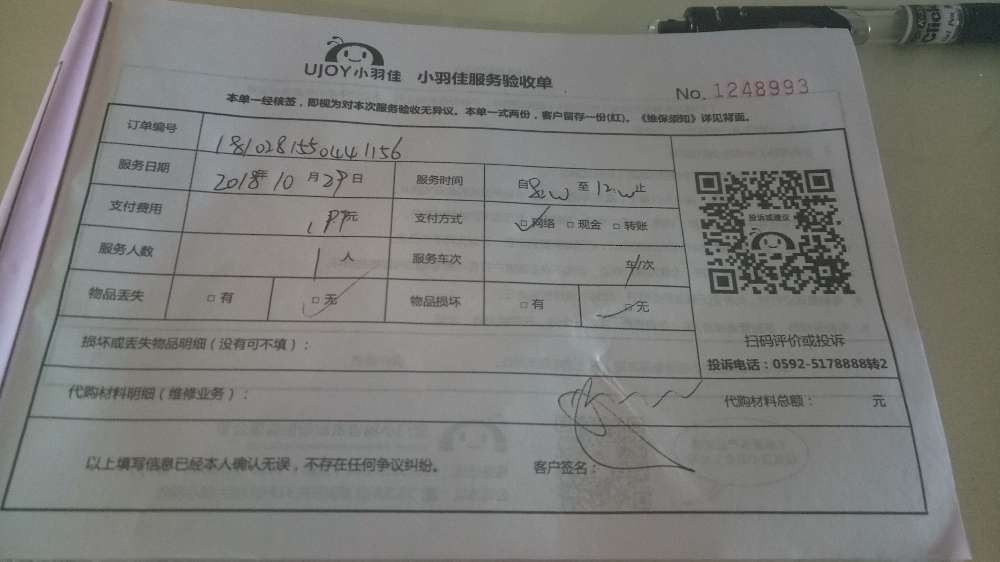 UJOY小羽佳 小羽佳服务验收单
No. 1248993
本单一经核签，即视为对本次服务验收无异议。本单一式两份，客户留存一份(红)。《维保须知》详见背面。
订单编号 1810281550441156
服务日期 2018年10月29日 服务时间 自 至 止
支付费用 元 支付方式 □网络 □现金 □转账
服务人数 1人 服务车次 车/次
物品丢失 □有 □无 物品损坏 □有 □无
投诉或建议
扫码评价或投诉
投诉电话：0592-5178888转2
损坏或丢失物品明细（没有可不填）：
代购材料明细（维修业务）： 代购材料总额： 元
以上填写信息已经本人确认无误，不存在任何争议纠纷。 客户签名：